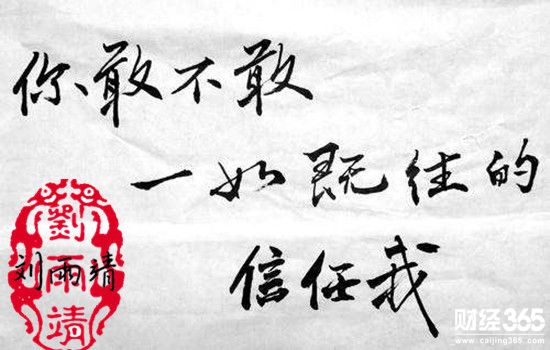 你敢不敢
一如既往的
信任我
劉雨靖
刘雨靖
财经365
www.caijing365.com